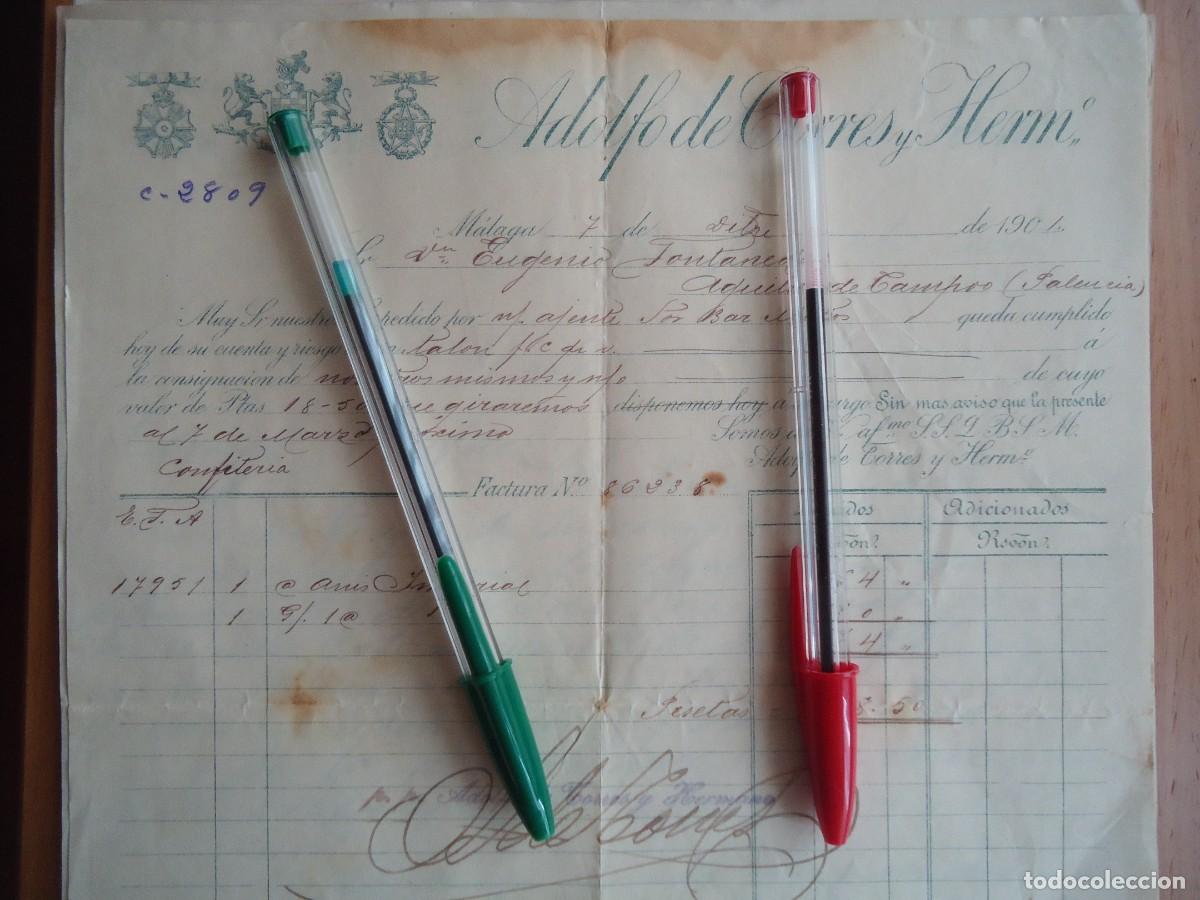 Adolfo de Torres y Herm.º
c-2809
Málaga 7 de Dbre de 1901
Sr. Dn. Eugenio Fontaneda
Aguilar de Campoo (Palencia)
Muy Sr nuestro pedido por n/ ajente Sor Bar queda cumplido
hoy de su cuenta y riesgo talon f c á
la consignacion de nosotros mismos y de cuyo
valor de Ptas 18-50 que giraremos disponemos hoy a cargo Sin mas aviso que la presente
al 7 de Marzo próximo Somos af.mo S.S.Q.B.S.M.
Confiteria Adolfo de Torres y Herm.º
Factura Nº 86238
E. F. A dos Adicionados
Rsoón?
17951 1 @ Anis Imperial 4 "
1 G/. 1@ 0 "
4 "
Pesetas 8-50
p. p. Adolfo de Torres y Hermano
todocoleccion